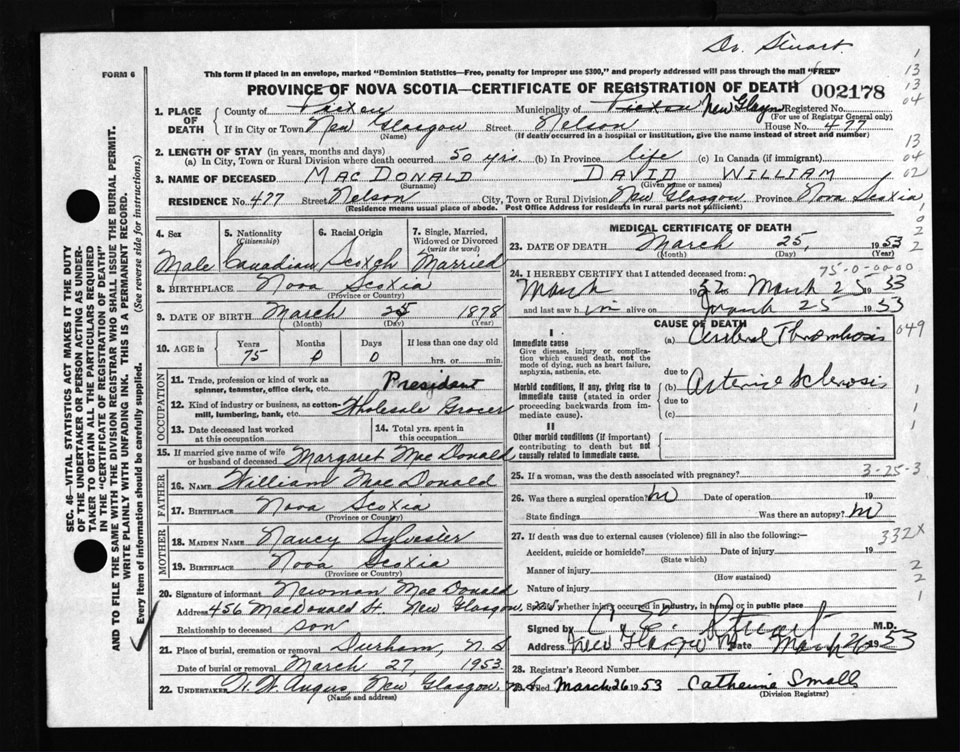 Dr. Stuart
FORM 6
This form if placed in an envelope, marked "Dominion Statistics—Free, penalty for improper use $300," and properly addressed will pass through the mail "FREE"
PROVINCE OF NOVA SCOTIA—CERTIFICATE OF REGISTRATION OF DEATH 002178
1. PLACE OF DEATH
County of Pictou Municipality of Pictou New Glasgow Registered No.
(For use of Registrar General only)
If in City or Town New Glasgow Street Nelson House No. 477
(Name) (If death occurred in a hospital or institution, give the name instead of street and number)
2. LENGTH OF STAY (in years, months and days)
(a) In City, Town or Rural Division where death occurred 50 yrs. (b) In Province life (c) In Canada (if immigrant)
3. NAME OF DECEASED MACDONALD DAVID WILLIAM
(Surname) (Given name or names)
RESIDENCE No. 477 Street Nelson City, Town or Rural Division New Glasgow Province Nova Scotia
(Residence means usual place of abode. Post Office Address for residents in rural parts not sufficient)
4. Sex
Male
5. Nationality
(Citizenship)
Canadian
6. Racial Origin
Scotch
7. Single, Married, Widowed or Divorced
(write the word)
Married
8. BIRTHPLACE Nova Scotia
(Province or Country)
9. DATE OF BIRTH March 25 1878
(Month) (Day) (Year)
10. AGE in
Years Months Days If less than one day old
75 0 0 hrs. or min.
OCCUPATION
11. Trade, profession or kind of work as spinner, teamster, office clerk, etc. President
12. Kind of industry or business, as cotton-mill, lumbering, bank, etc. Wholesale Grocer
13. Date deceased last worked at this occupation
14. Total yrs. spent in this occupation
15. If married give name of wife or husband of deceased Margaret MacDonald
FATHER
16. NAME William MacDonald
17. BIRTHPLACE Nova Scotia
(Province or Country)
MOTHER
18. MAIDEN NAME Nancy Sylvester
19. BIRTHPLACE Nova Scotia
(Province or Country)
20. Signature of informant Newman MacDonald
Address 456 MacDonald St. New Glasgow, N.S.
Relationship to deceased son
21. Place of burial, cremation or removal Durham, N.S
Date of burial or removal March 27, 1953
22. UNDERTAKER Angus, New Glasgow, N.S.
(Name and address)
MEDICAL CERTIFICATE OF DEATH
23. DATE OF DEATH March 25, 1953
(Month) (Day) (Year)
75-0-00-00
24. I HEREBY CERTIFY that I attended deceased from:
March 1952 March 25 1953
and last saw h im alive on March 25 1953
CAUSE OF DEATH
I
Immediate cause
Give disease, injury or complication which caused death, not the mode of dying, such as heart failure, asphyxia, asthenia, etc.
(a) Cerebral Thrombosis
due to
Morbid conditions, if any, giving rise to immediate cause (stated in order proceeding backwards from immediate cause).
(b) Arterio Sclerosis
due to
(c)
II
Other morbid conditions (if important) contributing to death but not causally related to immediate cause.
25. If a woman, was the death associated with pregnancy? 3-25-3
26. Was there a surgical operation? no Date of operation 19
State findings Was there an autopsy? no
27. If death was due to external causes (violence) fill in also the following:—
332X
Accident, suicide or homicide? Date of injury 19
(State which)
Manner of injury
(How sustained)
Nature of injury
Specify whether injury occurred in industry, in home, or in public place
Signed by C. E. Stuart M.D.
Address New Glasgow Date March 26 1953
28. Registrar's Record Number
Filed March 26 1953 Catherine Small
(Division Registrar)
SEC. 46—VITAL STATISTICS ACT MAKES IT THE DUTY
OF THE UNDERTAKER OR PERSON ACTING AS UNDERTAKER TO OBTAIN ALL THE PARTICULARS REQUIRED
IN THE "CERTIFICATE OF REGISTRATION OF DEATH" AND TO FILE THE SAME WITH THE DIVISION REGISTRAR WHO SHALL ISSUE THE BURIAL PERMIT.
WRITE PLAINLY WITH UNFADING INK. THIS IS A PERMANENT RECORD.
Every item of information should be carefully supplied. (See reverse side for instructions.)
1
13
13
04
13
04
02
1
0
2
2
049
1
1
1
2
2
1